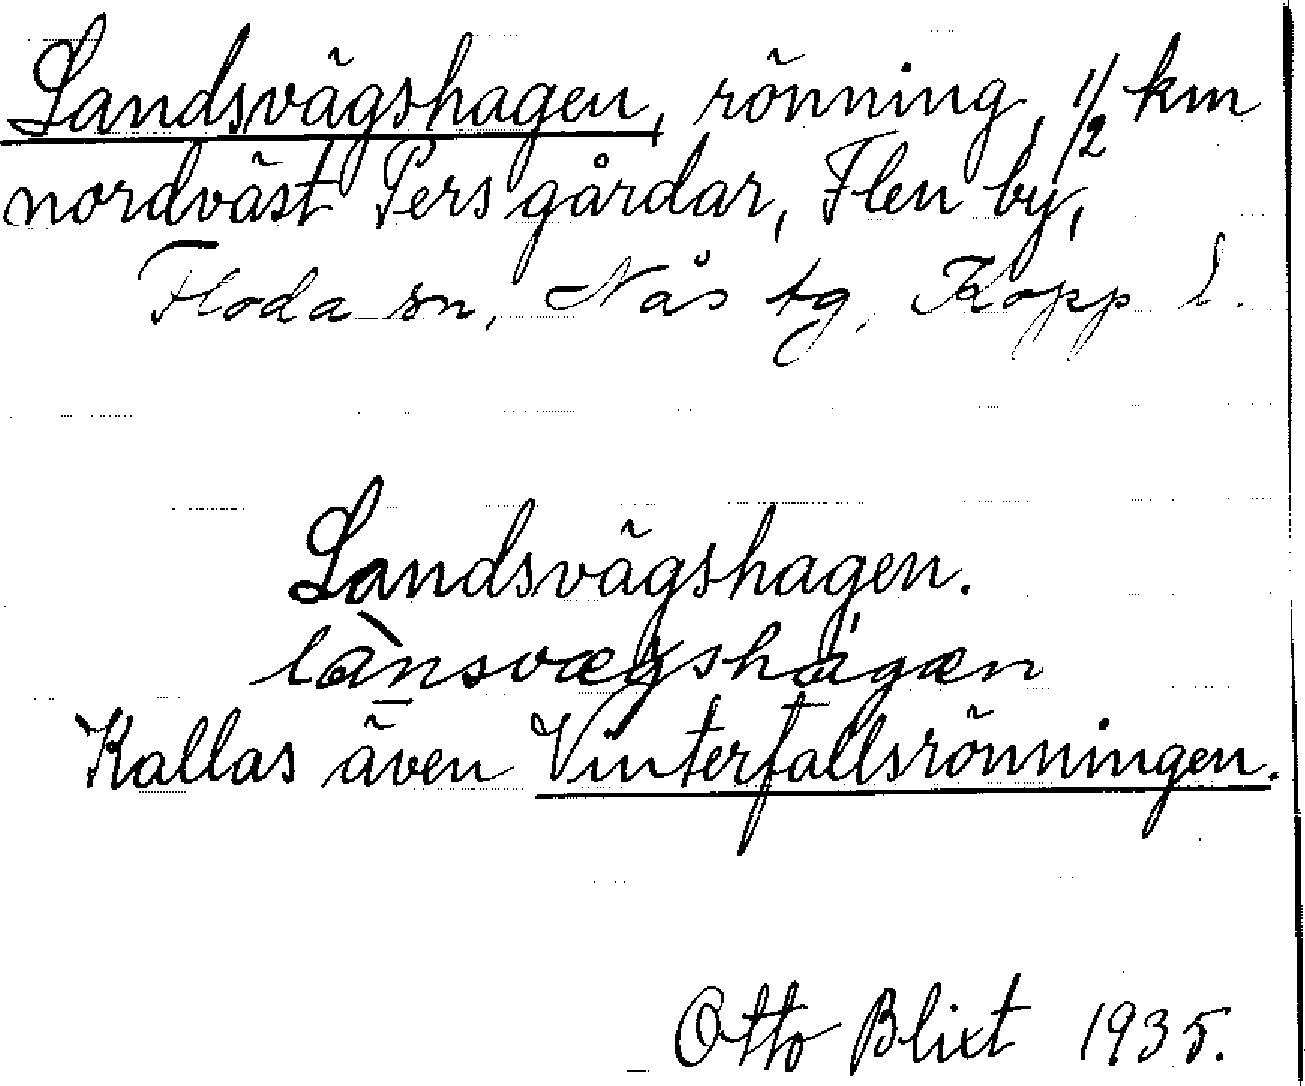 Landsvägshagen, rönning, 1/2 km
nordväst Pers gårdar, Flen by,
Floda sn, Nås tg, Kopp l.
Landsvägshagen.
lànsvægshágæn
Kallas även Vinterfallsrönningen.
Otto Blixt 1935.